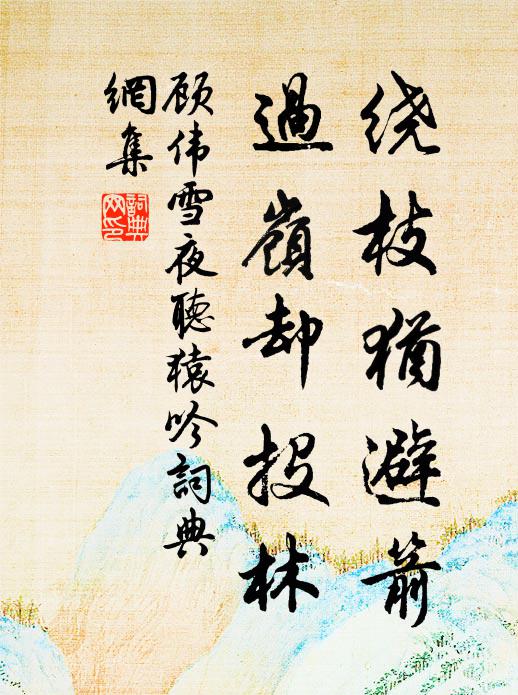 绕枝犹避箭
過嶺却投林
顾伟雪夜聽猿吟詞典
網集
詞典网印